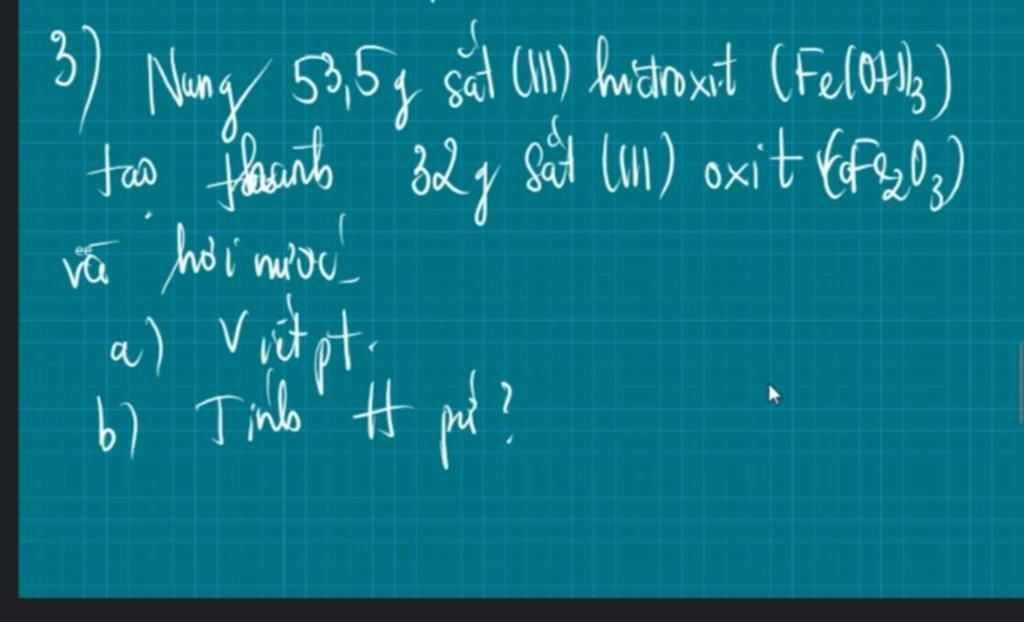 3) Nung 53,5g sắt (III) hiđroxit (Fe(OH)3)
tạo thành 32g sắt (III) oxit (Fe2O3)
và hơi nước
a) Viết pt.
b) Tính H pứ?